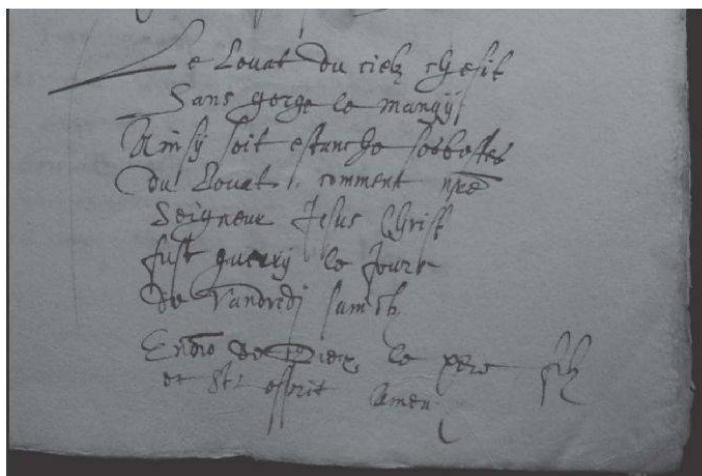 Le Louat du cielz chesit
Sans gorge le mangij
Ainsÿ soit estanche les bostes
du Louat, comment nr̃e
Seigneur Jesus Christ
fust guerrij le jour
de Vandredi sainctz
de Dieu le pere filz
et st esprit Amen